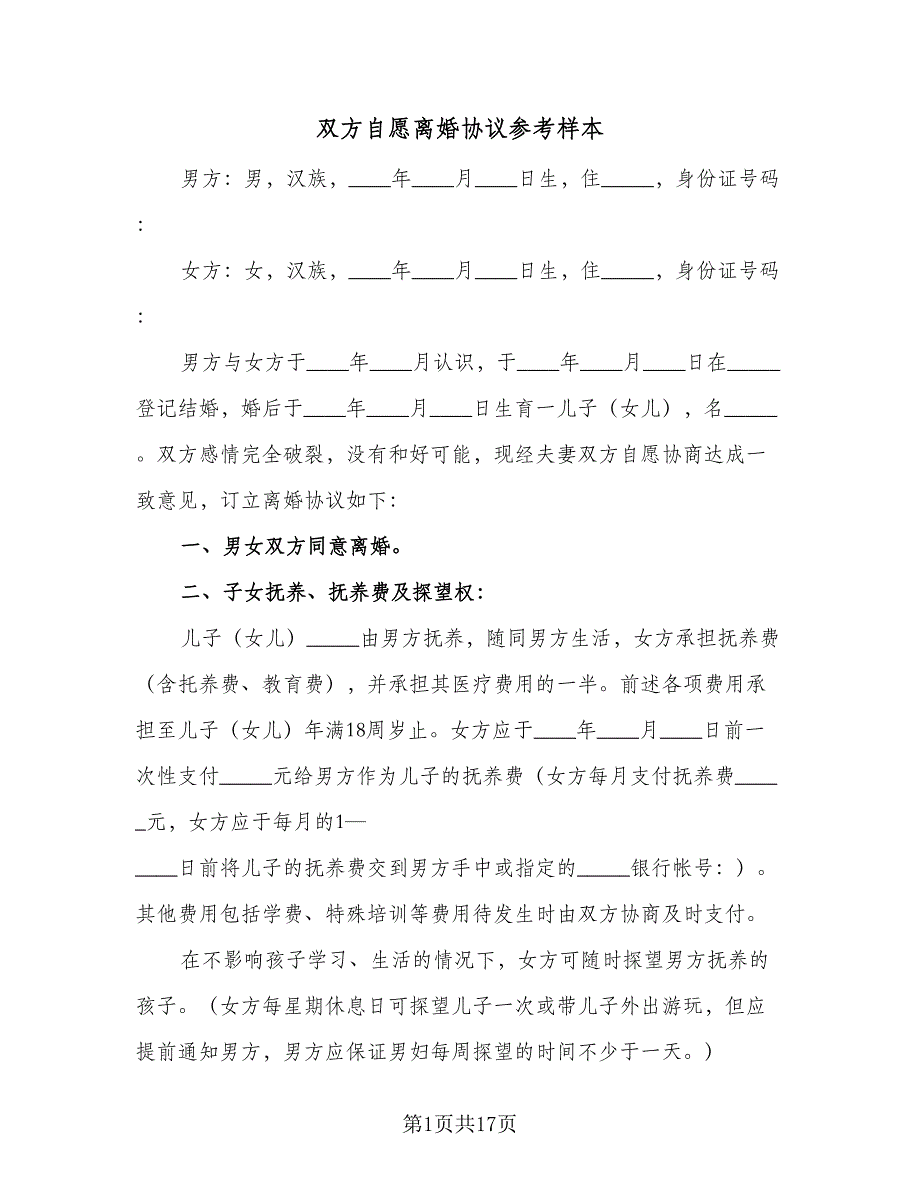 双方自愿离婚协议参考样本
男方：男，汉族，____年____月____日生，住_____，身份证号码
：
女方：女，汉族，____年____月____日生，住_____，身份证号码
：
男方与女方于____年____月认识，于____年____月____日在_____
登记结婚，婚后于____年____月____日生育一儿子（女儿），名_____
。双方感情完全破裂，没有和好可能，现经夫妻双方自愿协商达成一
致意见，订立离婚协议如下：
一、男女双方同意离婚。
二、子女抚养、抚养费及探望权：
儿子（女儿）_____由男方抚养，随同男方生活，女方承担抚养费
（含托养费、教育费），并承担其医疗费用的一半。前述各项费用承
担至儿子（女儿）年满18周岁止。女方应于____年____月____日前一
次性支付_____元给男方作为儿子的抚养费（女方每月支付抚养费____
_元，女方应于每月的1—
____日前将儿子的抚养费交到男方手中或指定的_____银行帐号：）。
其他费用包括学费、特殊培训等费用待发生时由双方协商及时支付。
在不影响孩子学习、生活的情况下，女方可随时探望男方抚养的
孩子。（女方每星期休息日可探望儿子一次或带儿子外出游玩，但应
提前通知男方，男方应保证男妇每周探望的时间不少于一天。）
第1页共17页